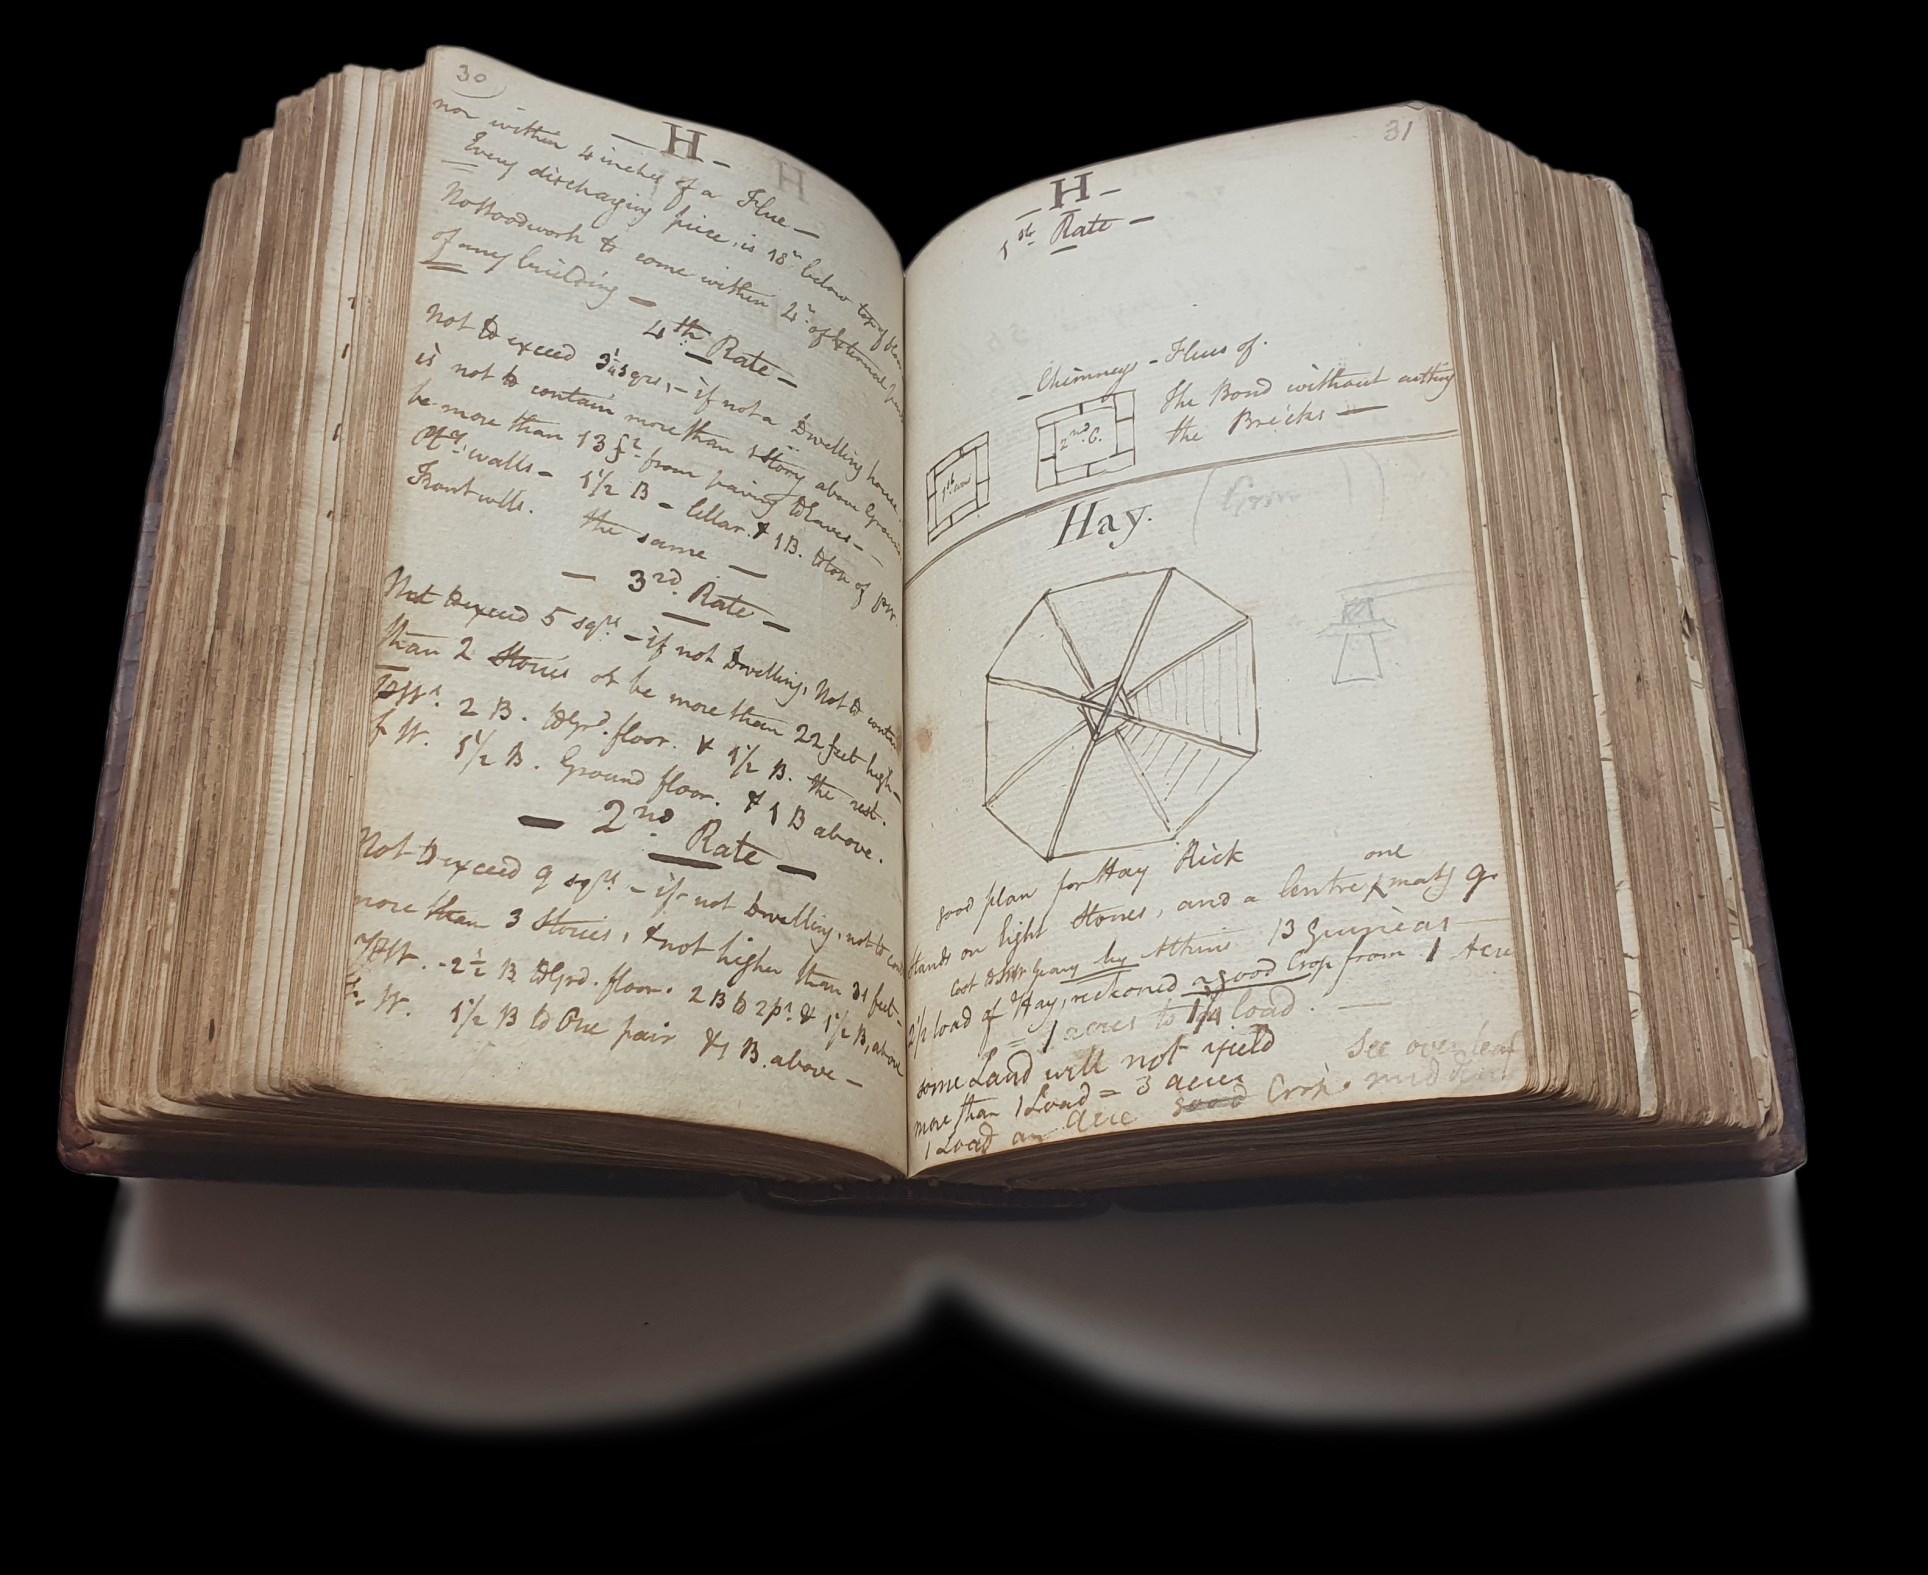 30
— H —
nor within 4 inches of a Flue —
Every discharging piece, is 18 in below top of
No Woodwork to come within 4 in of External
of any building —
4th Rate —
Not to exceed 3½ sqrs, — if not a Dwelling house
is not to contain more than 1 Story above Ground
be more than 13 ft from paving to Eaves —
walls — 1½ B — Cellar. & 1 B. to top of
Front walls. the same —
— 3rd Rate —
Not to exceed 5 sqrs — if not Dwelling, Not to contain
than 2 Stories or be more than 22 feet high —
PW. 2 B. to Grd. floor. & 1½ B. the rest.
f W. 1½ B. Ground floor. & 1 B above.
— 2nd Rate —
Not to exceed 9 sqrs — if not Dwelling, not to
more than 3 Stories, & not higher than 31 feet —
PW. - 2½ B to Grd. floor. 2 B to 2 pr. & 1½ B, above
Fr. W. 1½ B to One pair & 1 B. above —
31
— H —
1st Rate —
— Chimneys — Flues of.
The Bond without cutting
the Bricks —
2nd C.
1st
Hay.
good plan for Hay Rick
one
stands on Eight Stones, and a Centre maks 9.
Cost Geary by Atkins 13 Guineas
2½ load of Hay, reckoned a good Crop from 1 Acre
acres to 1¼ load. —
some Land will not yield
more than 1 Load = 3 acres
See over leaf
1 Load an acre good Crop.